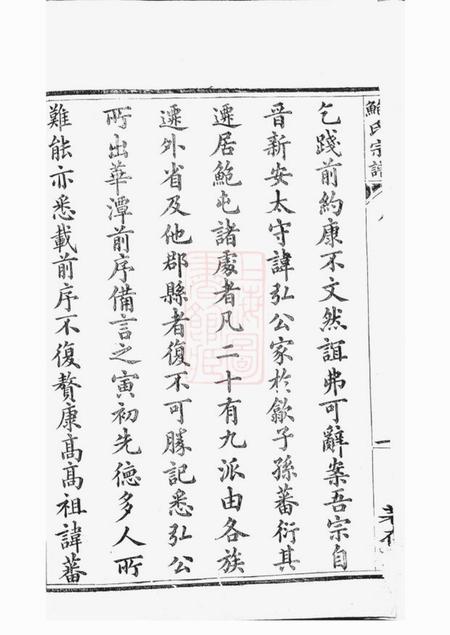 鮑氏宗譜
乞踐前約康不文然誼弗可辭案吾宗自
晉新安太守諱弘公家於歙子孫蕃衍其
遷居鮑屯諸處者凡二十有九派由各族
遷外省及他郡縣者復不可勝記悉弘公
所出華潭前序備言之寅初先德多人所
難能亦悉載前序不復贅康高高祖諱蕃